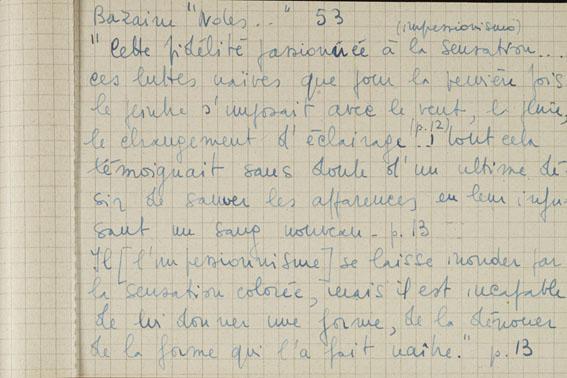 Bazaine "Notes.." 53
(impressionismo)
"Cette fidélité passionnée à la sensation...
ces luttes naïves que pour la première fois
le peintre s'imposait avec le vent, la pluie,
le changement d'éclairage (p. 12) ... tout cela
témoignait sans doute d'un ultime dé-
sir de sauver les apparences, en leur infu-
sant un sang nouveau. p. 13
Il [l'impressionnisme] se laisse inonder par
la sensation colorée, mais il est incapable
de lui donner une forme, de la dénouer
de la forme qui l'a fait naître." p. 13